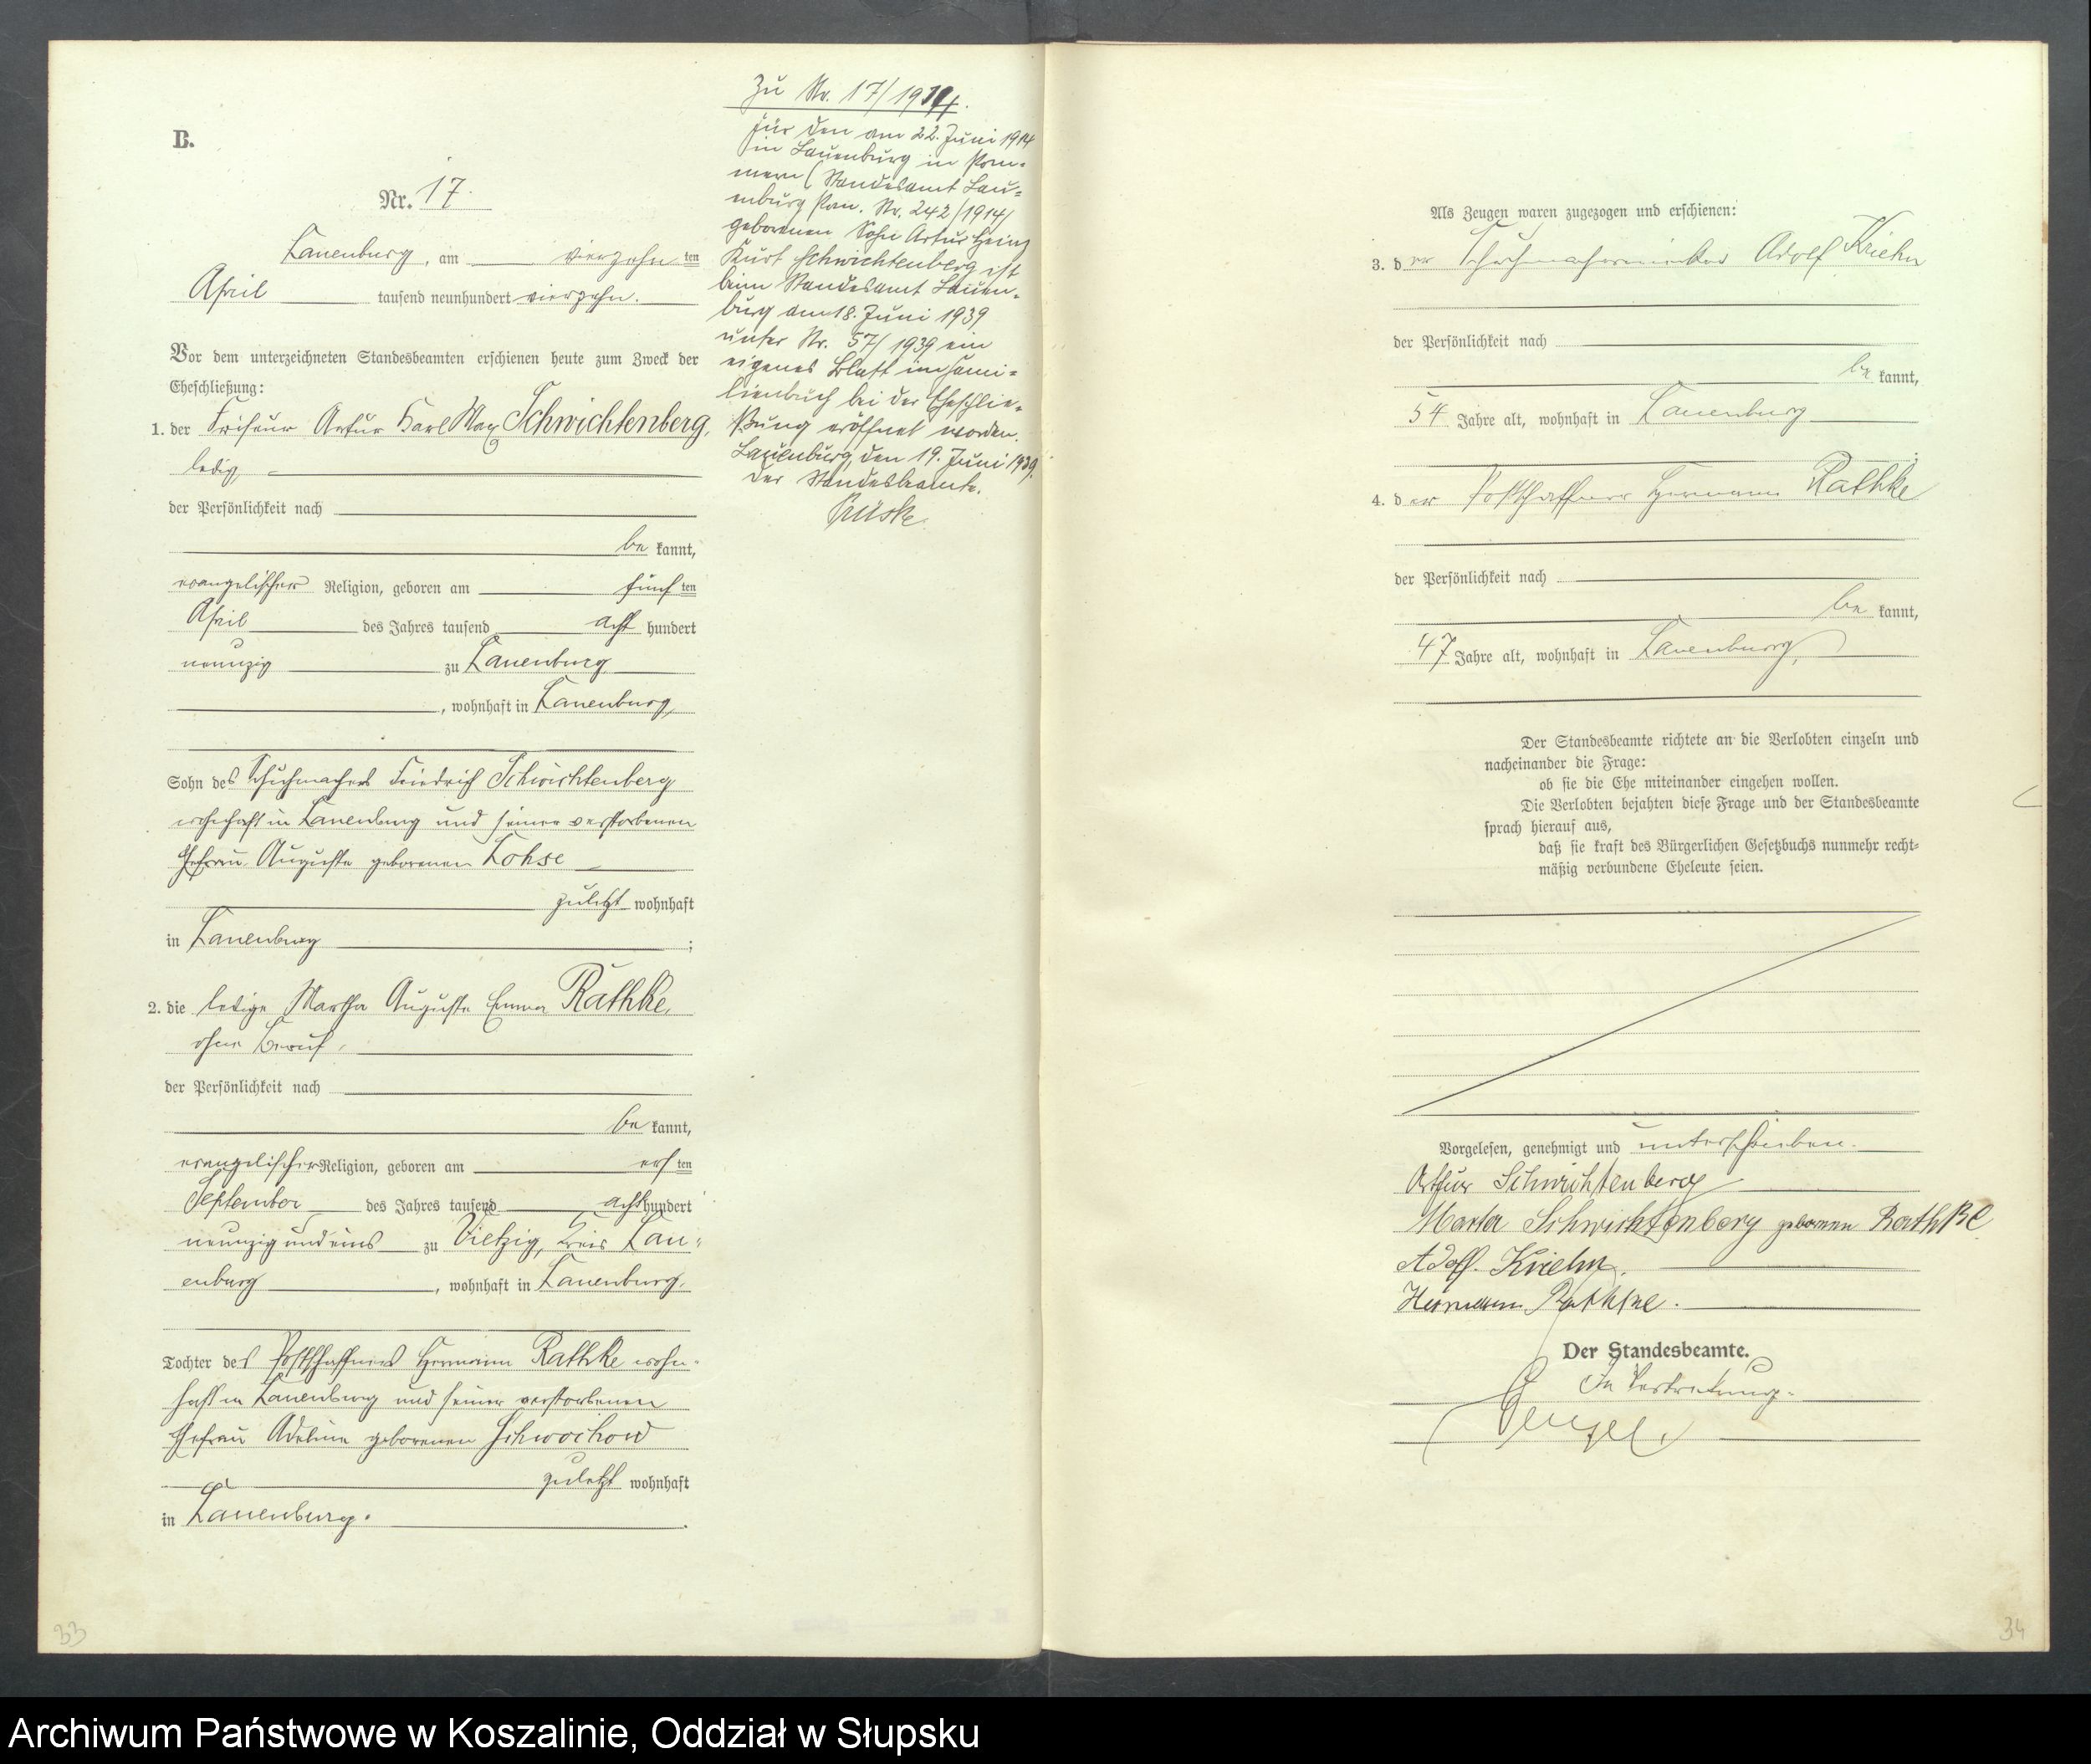 B.
Nr. 17.
Lauenburg, am vierzehnten
April tausend neunhundert vierzehn.
Vor dem unterzeichneten Standesbeamten erschienen heute zum Zweck der
Eheschließung:
1. der Friseur Artur Karl Max Schwichtenberg,
ledig,
der Persönlichkeit nach
bekannt,
evangelischer Religion, geboren am fünften
April des Jahres tausend acht hundert
neunzig zu Lauenburg
, wohnhaft in Lauenburg,
Sohn des Schuhmachers Friedrich Schwichtenberg
wohnhaft in Lauenburg und seiner verstorbenen
Ehefrau Auguste geborenen Lohse
zuletzt wohnhaft
in Lauenburg ;
2. die ledige Martha Auguste Emma Rathke,
ohne Beruf,
der Persönlichkeit nach
bekannt,
evangelischer Religion, geboren am ersten
September des Jahres tausend acht hundert
neunzig und eins zu Vietzig, Kreis Lau-
enburg , wohnhaft in Lauenburg,
Tochter des Postschaffners Hermann Rathke wohn-
haft in Lauenburg und seiner verstorbenen
Ehefrau Adeline geborenen Schwochow
zuletzt wohnhaft
in Lauenburg.
Zu Nr. 17/1914.
Für den am 22. Juni 1914
in Lauenburg in Pom-
mern (Standesamt Lau-
enburg Pom. Nr. 242/1914)
geborenen Sohn Artur Heinz
Kurt Schwichtenberg ist
beim Standesamt Lauen-
burg am 18. Juni 1939
unter Nr. 57/1939 ein
eigenes Blatt im Fami-
lienbuch bei der Eheschlie-
ßung eröffnet worden.
Lauenburg, den 19. Juni 1939.
Der Standesbeamte.
33
Als Zeugen waren zugezogen und erschienen:
3. der Schuhmachermeister Adolf Kriehn
der Persönlichkeit nach
bekannt,
54 Jahre alt, wohnhaft in Lauenburg
;
4. der Postschaffner Hermann Rathke
der Persönlichkeit nach
bekannt,
47 Jahre alt, wohnhaft in Lauenburg,
Der Standesbeamte richtete an die Verlobten einzeln und
nacheinander die Frage:
ob sie die Ehe miteinander eingehen wollen.
Die Verlobten bejahten diese Frage und der Standesbeamte
sprach hierauf aus,
daß sie kraft des Bürgerlichen Gesetzbuchs nunmehr recht-
mäßig verbundene Eheleute seien.
Vorgelesen, genehmigt und unterschrieben.
Arthur Schwichtenberg
Marta Schwichtenberg geborene Rathke
Adolf Kriehn.
Hermann Rathke.
Der Standesbeamte.
In Vertretung.
34
Archiwum Państwowe w Koszalinie, Oddział w Słupsku